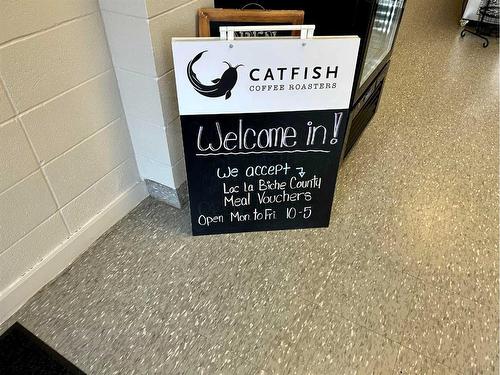 CATFISH
COFFEE ROASTERS
Welcome in!
We accept
Lac la Biche County
Meal Vouchers
Open Mon to Fri 10-5